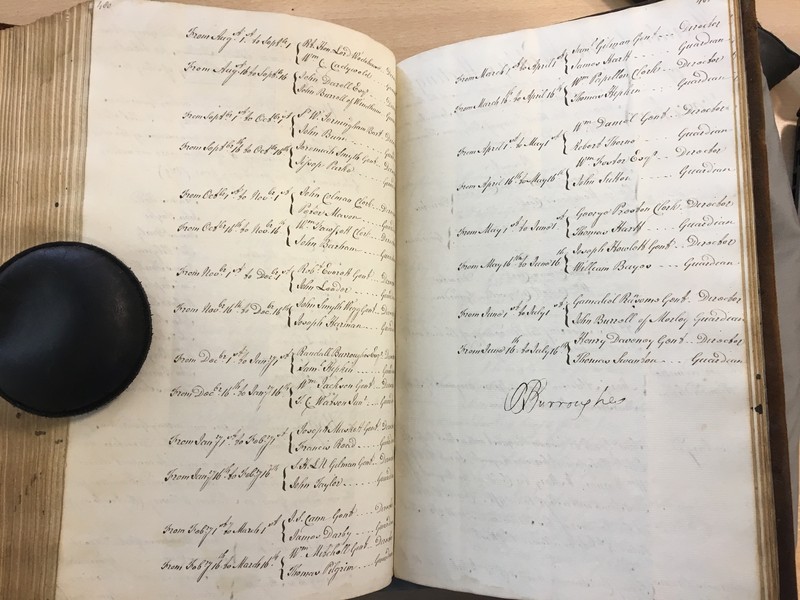 From Augst 1st to Septr 1 Rt Hon Lord Wodehouse
Wm
From Augst 16 to Septr 16 John Darell Esqr
John Burrell of Windham
From Septr 1st to Octr 1st Sr W. Jerningham Bart
John Bunn
From Septr 16 to Octr 16th Jeremiah Smyth Gent
Jessop Parke
From Octr 1st to Novr 1st John Colman Clerk
Peter Mason
From Octr 16th to Novr 16 Wm Clerk
John Barham
From Novr 1st to Decr 1st Robt Everett Gent
John Loader
From Novr 16th to Decr 16th John Smyth Gent
Joseph Harman
From Decr 1st to Jany 1st Randall Burroughes Esqr
Saml Hipkin
From Decr 16th to Jany 16th Wm Jackson Gent
T. C. Watson Junr
From Jany 1st to Feby 1st Joseph Muskett Gent
Francis Rand
From Jany 16th to Feby 16th S. H. L. N. Gilman Gent
John Taylor
From Feby 1st to March 1st J. S. Cann Gent
James Darby
From Feby 16th to March 16th Wm Mitchell Gent
Thomas Pilgrim
From March 1st to April 1st Saml Gilman Gent Director
James Hartt Guardian
From March 16th to April 16th Wm Papillon Clerk Director
Thomas Hipkin Guardian
From April 1st to May 1st Wm Daniel Gent Director
Robert Thorne Guardian
From April 16th to May 16th Wm Foster Esqr Director
John Sutton Guardian
From May 1st to June 1st George Preston Clerk Director
Thomas Hartt Guardian
From May 16th to June 16th Joseph Howlett Gent Director
William Bayes Guardian
From June 1st to July 1st Gamaliel Gent Director
John Burrell of Morley Guardian
From June 16th to July 16th Henry Gent Director
Thomas Swanton Guardian
Burroughes